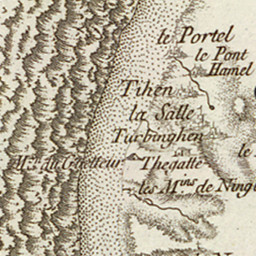 le Portel
le Pont
Hamel
Tihen
la Salle
Turbinghen
Thegatte
le
les M.ins de Ning